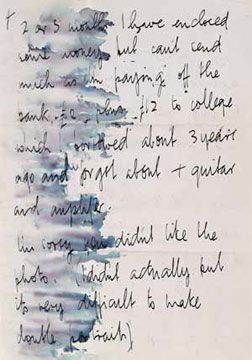 + 2 or 3 months I have enclosed
some money but can't send
much as I'm paying off the
bank, plus £12 to college
which I borrowed about 3 years
ago and forgot about + guitar
and amplifier.
I'm sorry you didn't like the
photo. (I didn't actually but
its very difficult to make
double portraits)